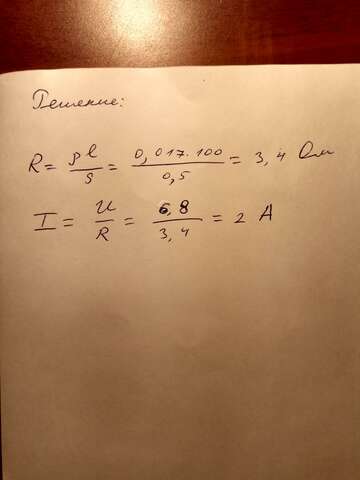 Решение:
R = ρl/S = 0,017·100/0,5 = 3,4 Ом
I = U/R = 6,8/3,4 = 2 А